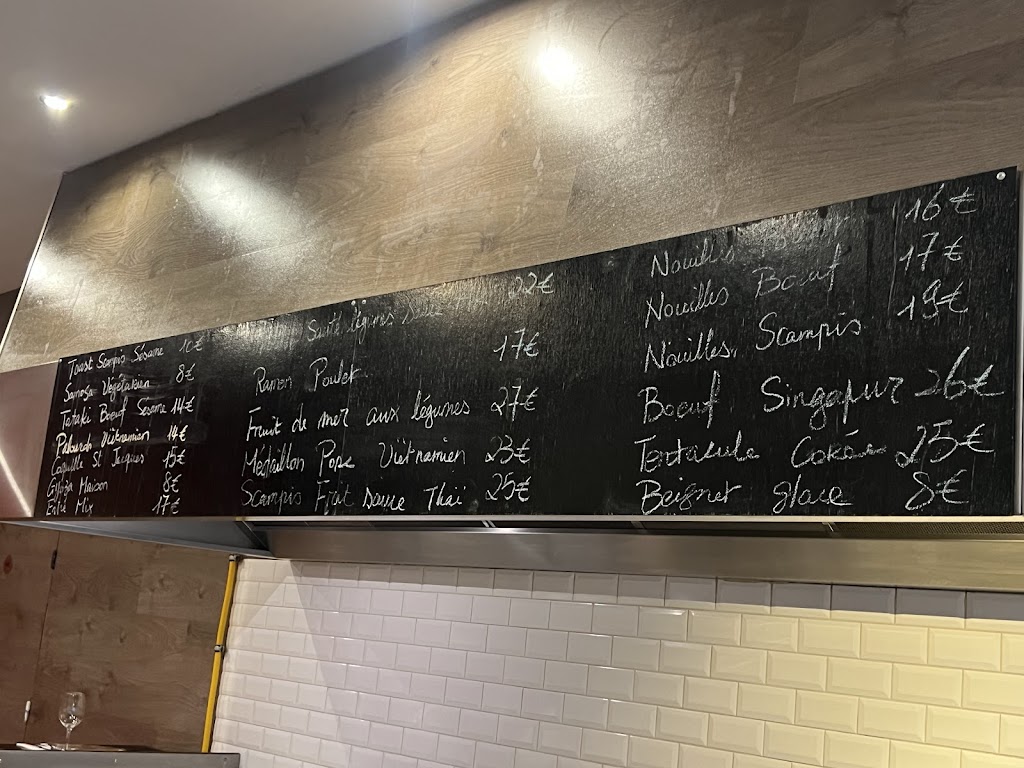 Toast Scampis Sésame 10€
Samosa Végétarien 8€
Tataki Boeuf Sésame 14€
Vietnamien 14€
Coquille St Jacques 15€
Gyoza Maison 8€
Mix 17€
Sauté légumes 22€
Ramen Poulet 17€
Fruit de mer aux légumes 27€
Médaillon Porc Viêtnamien 23€
Scampis Frit sauce Thaï 25€
Nouilles 16€
Nouilles Boeuf 17€
Nouilles Scampis 19€
Boeuf Singapur 26€
Tentacule 25€
Beignet glace 8€